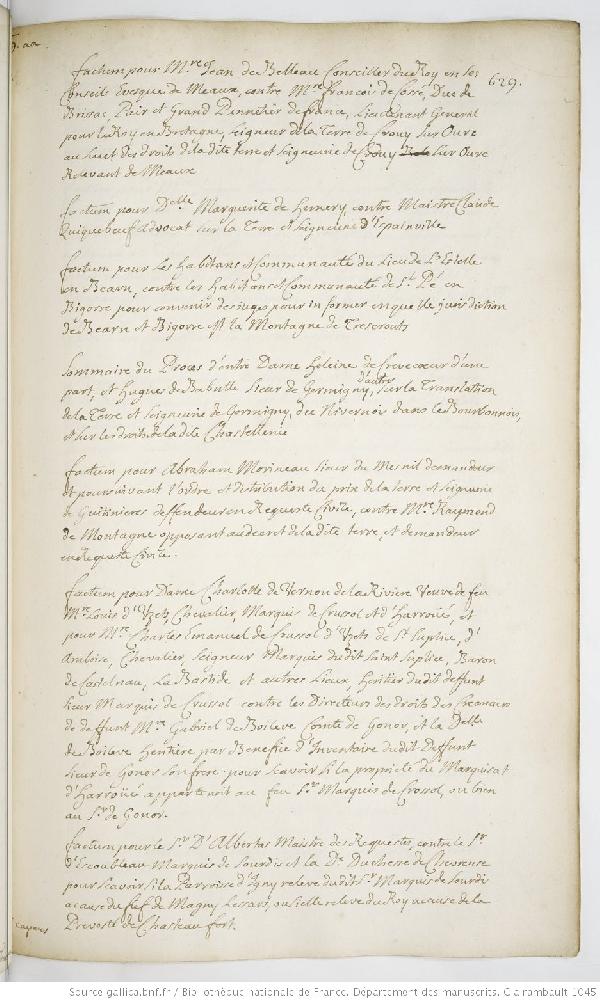 629.
factum pour M.re Jean de Belleau Conseiller du Roy en ses
Conseils Evesque de Meaux, contre M.re francois de Cossé, Duc de
Brissac, Pair et Grand Pannetier de france, Lieutenant General
pour le Roy en Bretagne, Seigneur de la Terre de Crouy sur Ourc
au sujet des droits de la dite terre et Seigneurie de Crouy sur Ourc
Relevant de Meaux
factum pour D.elle Marguerite de Hemery, contre Maistre Claude
Quiqueboeuf Advocat sur la Terre et Seigneurie d'Espainville
factum pour les habitans et Communauté du Lieu de L'Estelle
en Bearn, contre les habitans et Communauté de S.t Pé en
Bigorre pour convenir de juges pour informer en quelle jurisdiction
de Bearn et Bigorre est la Montagne de Trescrouts
Sommaire du Proces d'entre Dame Heleine de Crevecoeur d'une
part, et Hugues de Babutte Sieur de Germigny d'autre, sur la Translation
de la Terre et Seigneurie de Germigny, du Nivernois dans le Bourbonnois,
et sur les droits de la dite Chastellenie
factum pour Abraham Morineau Sieur du Mesnil demandeur
et poursuivant l'ordre et distribution du prix de la terre et Seigneurie
de Guitinieres deffendeur en Requeste Civile, contre M.re Raymond
de Montagne opposant au decret de la dite terre, et demandeur
en Requeste Civile.
factum pour Dame Charlotte de Vernou de la Riviere Veuve de feu
M.re Louis d'Uzets Chevalier, Marquis de Crussol et d'Harroüé, et
pour M.re Charles Emanuel de Crussol d'Uzets de S.t Suplice, d'
Amboise, Chevalier, Seigneur Marquis dudit Saint Suplice, Baron
de Castelnau, La Bastide et autres Lieux, heritier dudit deffunt
Sieur Marquis de Crussol contre les Directeurs des droits des Creanciers
de deffunt M.re Gabriel de Boileve Comte de Gonor, et la D.elle
de Boileve heritiere par Benefice d'Inventaire dudit Deffunt
Sieur de Gonor son frere pour scavoir si la proprieté du Marquisat
d'Harroüé appartenoit au feu S.r Marquis de Crossol, ou bien
au S.r de Gonor.
factum pour le S.r D'Albertas Maistre des Requestes, contre le S.r
d'Escoubleau Marquis de Sourdis et la D.e Duchesse de Chevreuse
pour Scavoir si la Parroisse d'Igny releve dudit S.r Marquis de Sourdis
a cause du fief de Magny Lessars, ou si elle releve du Roy a cause de la
Prevosté de Chasteau fort.
Source gallica.bnf.fr / Bibliothèque nationale de France. Département des manuscrits. Clairambault 1045